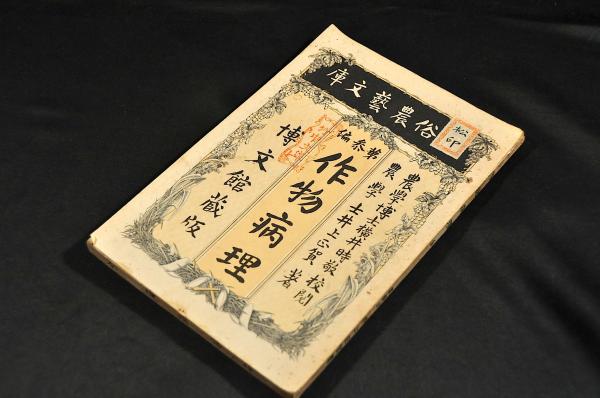 俗農藝文庫
松印
農學博士横井時敬校閲
農學士井上正賀著
第参編
作物病理
博文館蔵版